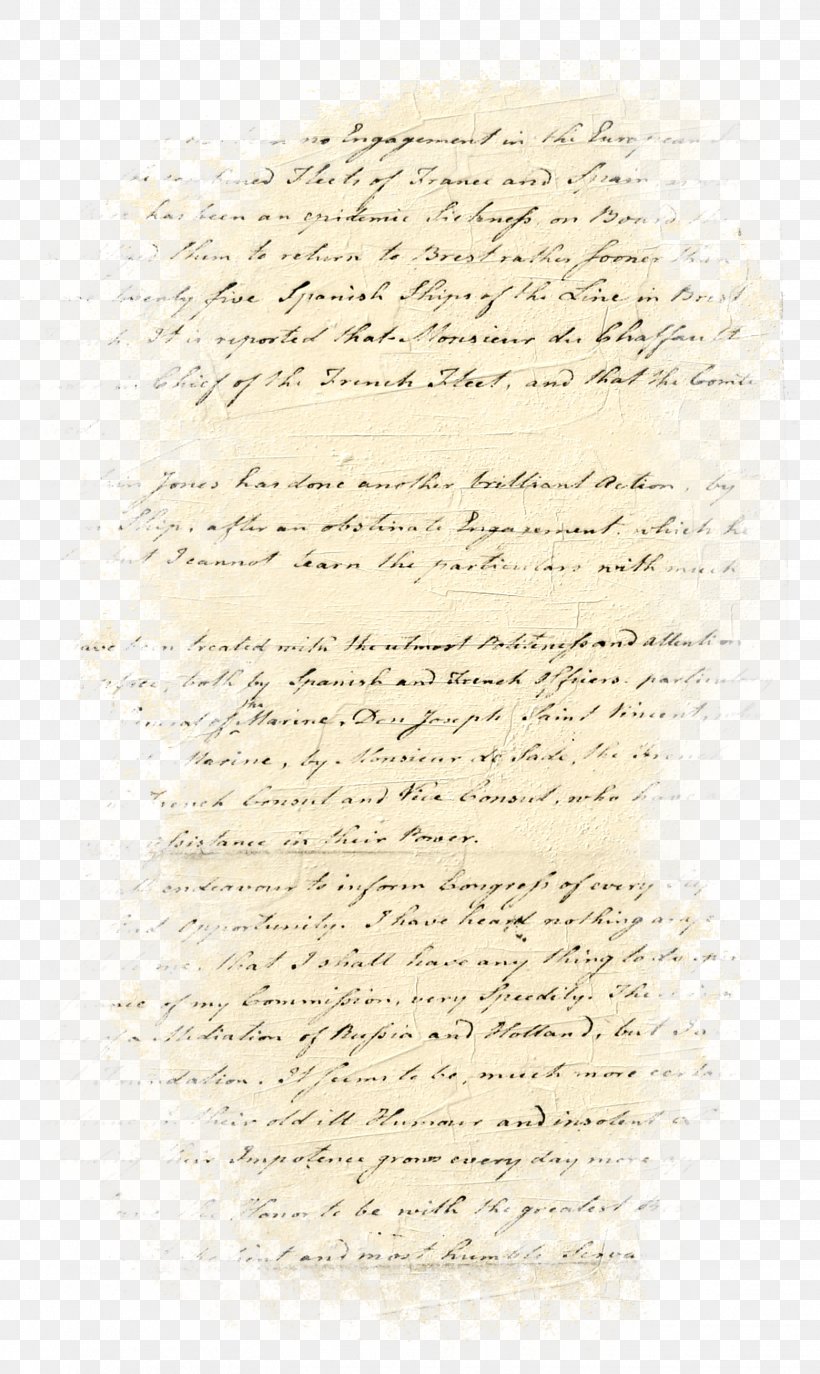 no Engagement in the European
Fleets of France and Spain,
has been an epidemic Sickness, on Board the
them to return to Brest rather sooner than
twenty five Spanish Ships of the Line in Brest
It is reported that Monsieur du Chaffault
Chief of the French Fleet, and that the Comte
Jones has done another brilliant Action, by
Ship, after an obstinate Engagement, which he
but I cannot learn the particulars with much
have been treated with the utmost Politeness and attention
both by Spanish and French Officers. particularly
General of the Marine, Don Joseph Saint Vincent,
Marine, by Monsieur de Sade, the French
French Consul and Vice Consul, who have
assistance in their Power.
endeavour to inform Congress of every
opportunity. I have heard nothing
me, that I shall have any thing to do
of my Commission, very Speedily. There
of a Mediation of Russia and Holland, but I
Foundation. It seems to be, much more certain
in their old ill Humour and insolent
their Impotence grows every day more
Honor to be with the greatest
and most humble Serva